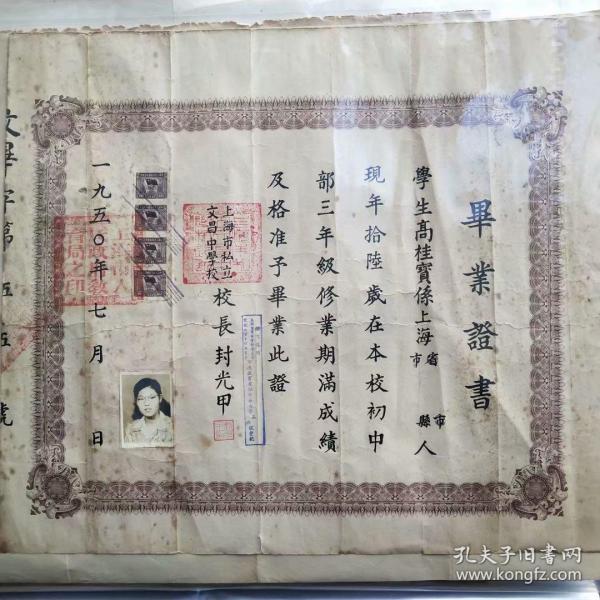 畢業證書
學生高桂寶係上海省市縣市人
現年拾陸歲在本校初中
部三年級修業期滿成績
及格准予畢業此證
上海市私立
文昌中學校
校長封光甲
一九五〇年七月日
文畢字第伍伍號
孔夫子旧书网
www.kongfz.com